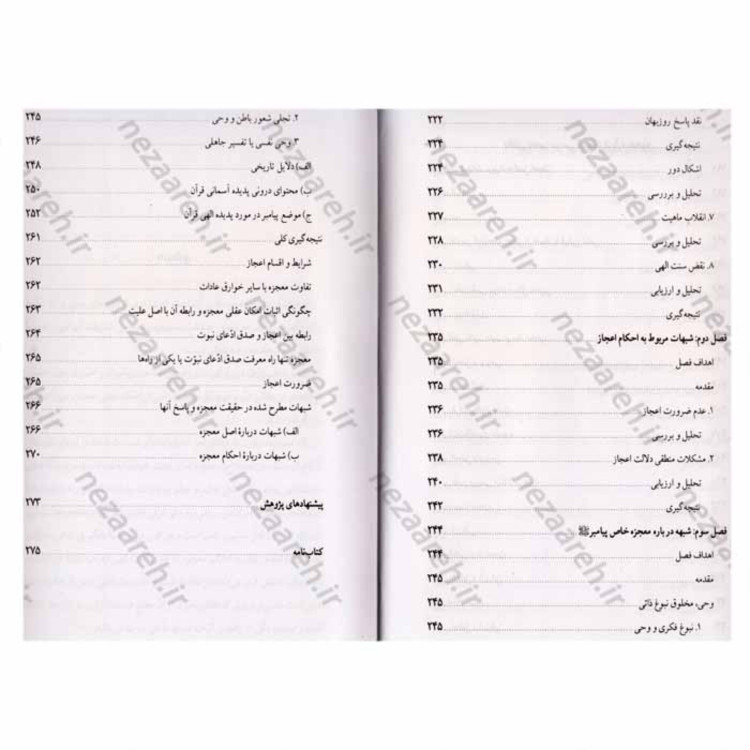 نقد پاسخ روزبهان ۲۲۲
نتیجه‌گیری ۲۲۴
اشکال دور ۲۲۴
تحلیل و بررسی ۲۲۶
۷. انقلاب ماهیت ۲۲۷
تحلیل و بررسی ۲۲۸
۸. نقض سنت الهی ۲۳۰
تحلیل و ارزیابی ۲۳۱
نتیجه‌گیری ۲۳۲
فصل دوم: شبهات مربوط به احکام اعجاز ۲۳۵
اهداف فصل ۲۳۵
مقدمه ۲۳۵
۱. عدم ضرورت اعجاز ۲۳۶
تحلیل و بررسی ۲۳۶
۲. مشکلات منطقی دلالت اعجاز ۲۳۸
تحلیل و ارزیابی ۲۴۰
نتیجه‌گیری ۲۴۲
فصل سوم: شبهه درباره معجزه خاص پیامبر ﷺ ۲۴۴
اهداف فصل ۲۴۴
مقدمه ۲۴۵
وحی، مخلوق نبوغ ذاتی ۲۴۵
۱. نبوغ فکری و وحی ۲۴۵
۲. تجلی شعور باطن و وحی ۲۴۵
۳. وحی نفسی یا تفسیر جاهلی ۲۴۶
الف) دلایل تاریخی ۲۴۸
ب) محتوای درونی پدیده آسمانی قرآن ۲۵۰
ج) موضع پیامبر در مورد پدیده الهی قرآن ۲۵۲
نتیجه‌گیری کلی ۲۶۱
شرایط و اقسام اعجاز ۲۶۲
تفاوت معجزه با سایر خوارق عادات ۲۶۲
چگونگی اثبات امکان عقلی معجزه و رابطه آن با اصل علیت ۲۶۳
رابطه بین اعجاز و صدق ادّعای نبوت ۲۶۴
معجزه تنها راه معرفت صدق ادّعای نبوّت یا یکی از راه‌ها ۲۶۵
ضرورت اعجاز ۲۶۵
شبهات مطرح شده در حقیقت معجزه و پاسخ آنها ۲۶۶
الف) شبهات دربارهٔ اصل معجزه ۲۶۶
ب) شبهات دربارهٔ احکام معجزه ۲۷۰
پیشنهادهای پژوهش ۲۷۳
کتاب‌نامه ۲۷۵
nezaareh.ir